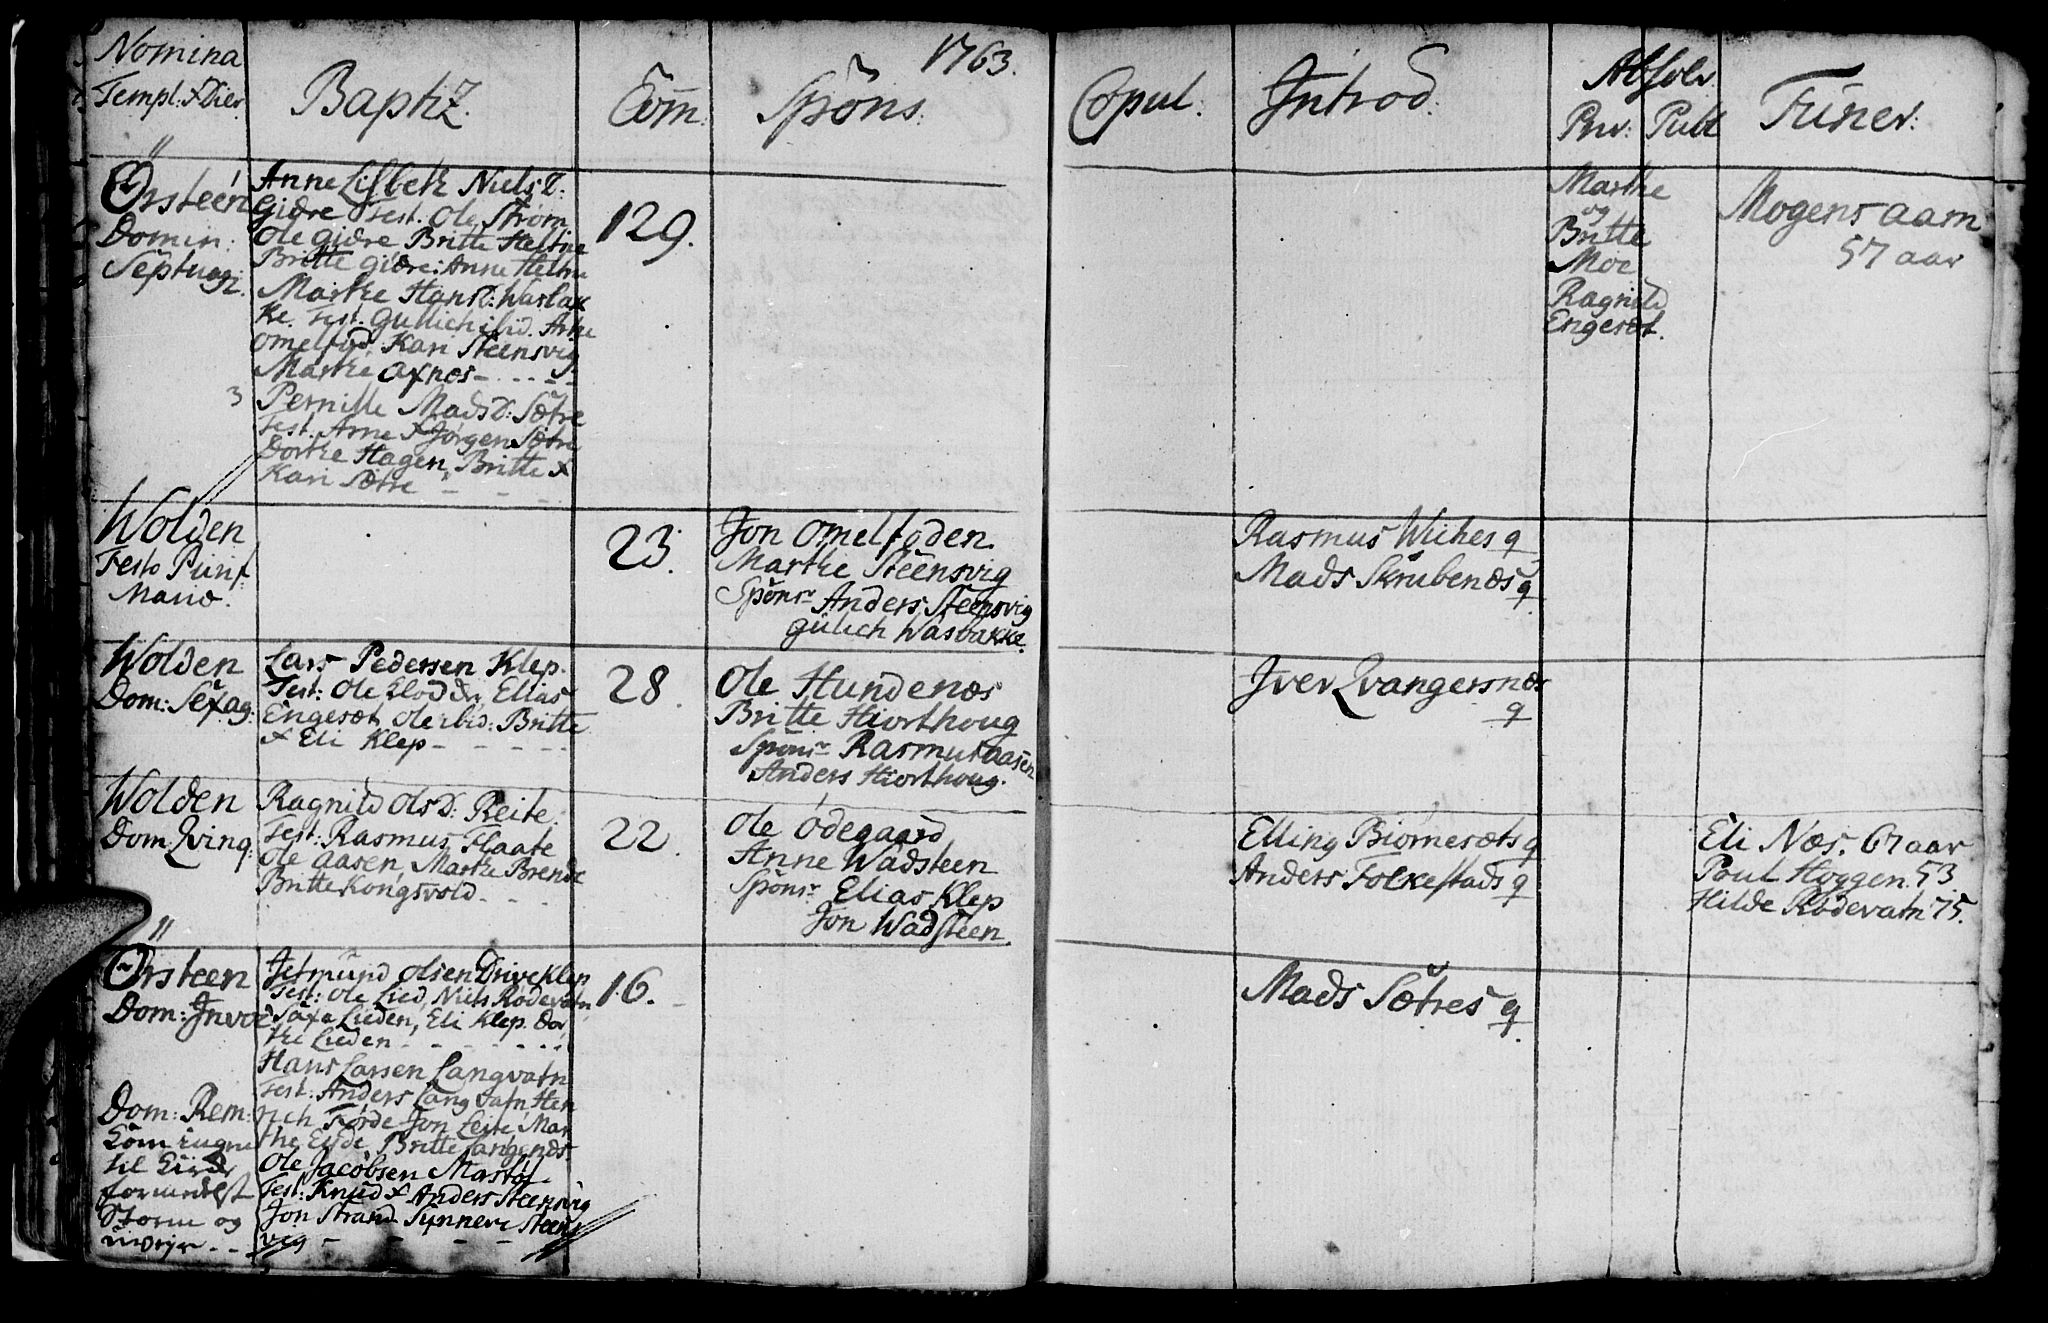 1763.
Nomina
Templ: & Dier
Baptiz.
Com̄:
Spōns:
Copul:
Introd:
Absolv
Priv: Publ
Funer:
Ørsteen
Domin:
Septuag:
Anne Lisbeth Niels D:
Giøre Test. Ole Strøm
Ole Giøre Britte Heltne
Britte Giøre: Anne Heltne
Marthe Hans D: Wasbak
ke. Test. Gullich ibid. Arne
Omelfod, Kari Steensvig
Marthe Axnes - - - -
3 Pernille Mads D: Sætre
Test. Arne & Jørgen Sætre
Dorthe Hagen, Britte &
Kari Sætre - - -
129.
Marthe
og
Britte
Moe
Ragnild
Engesæt.
Mogens Aam
57 aar
Wolden
Festo Purif:
Mariæ.
23.
Jon Omelfoden.
Marthe Steensvig
Spons: Anders Steensvig
Gulich Wasbakke.
Rasmus Wiches q
Mads Skrubenæs q
Wolden
Dom: Sexag:
Lars Pedersen Klep.
Test: Ole Elodden, Ellias
Engesæt, Ole ibid: Britte
& Eli Klep - - - -
28.
Ole Hundenæs
Britte Hiorthoug
Spons: Rasmus Aasen
Anders Hiorthoug.
Iver Qvangersnæs
q
Wolden
Dom: Qvinq:
Ragnild Ols D: Reite.
Test: Rasmus Flaate
Ole Aasen, Marthe Brende
Britte Kongsvold - - -
22.
Ole Ødegaard
Anne Wadsteen
Spons: Elias Klep
Jon Wadsteen.
Elling Biørnesæts q
Anders Folkestads q
Eli Næs. 67 aar
Poul Hoggen. 53
Hilde Rødevatn 75.
Ørsteen
Dom: Invoc
Jetmund Olsen Driveklep
Test: Ole Lied, Niels Rødevatn,
Saxe Lieden, Eli Klep. Dor
the Lieden - - - - -
Hans Larsen Langvatn
Test: Anders Langvatn Hen
rich Førde Jon Leite Mar
the Eide, Britte Langenæs.
16.
Mads Sætres q
Dom: Rem:
Kom ingen
til Kirke
formedelst
Storm og
uveyr - -
Ole Jacobsen Mastøl
Test: Knud & Anders Steensvig
Jon Strand Synneve Steens
vig - - - -